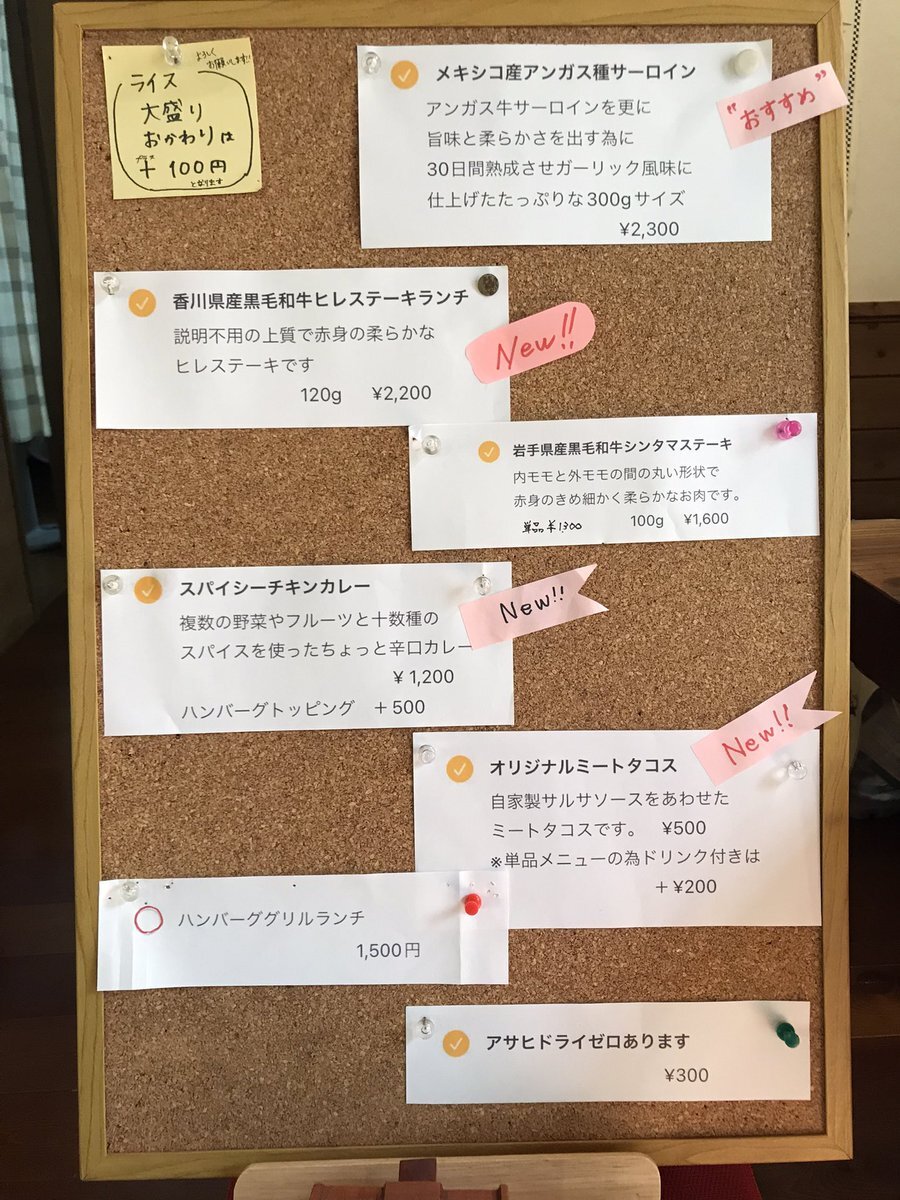 よろしく
お願いします!!
ライス
大盛り
おかわりは
プラス
+ 100円
となります
メキシコ産アンガス種サーロイン
アンガス牛サーロインを更に
旨味と柔らかさを出す為に
30日間熟成させガーリック風味に
仕上げたたっぷりな300gサイズ
¥2,300
"おすすめ"
香川県産黒毛和牛ヒレステーキランチ
説明不用の上質で赤身の柔らかな
ヒレステーキです
120g ¥2,200
New!!
岩手県産黒毛和牛シンタマステーキ
内モモと外モモの間の丸い形状で
赤身のきめ細かく柔らかなお肉です。
単品¥1,300 100g ¥1,600
スパイシーチキンカレー
複数の野菜やフルーツと十数種の
スパイスを使ったちょっと辛口カレー
¥ 1,200
ハンバーグトッピング +500
New!!
オリジナルミートタコス
自家製サルサソースをあわせた
ミートタコスです。 ¥500
※単品メニューの為ドリンク付きは
+¥200
New!!
ハンバーググリルランチ
1,500円
アサヒドライゼロあります
¥300